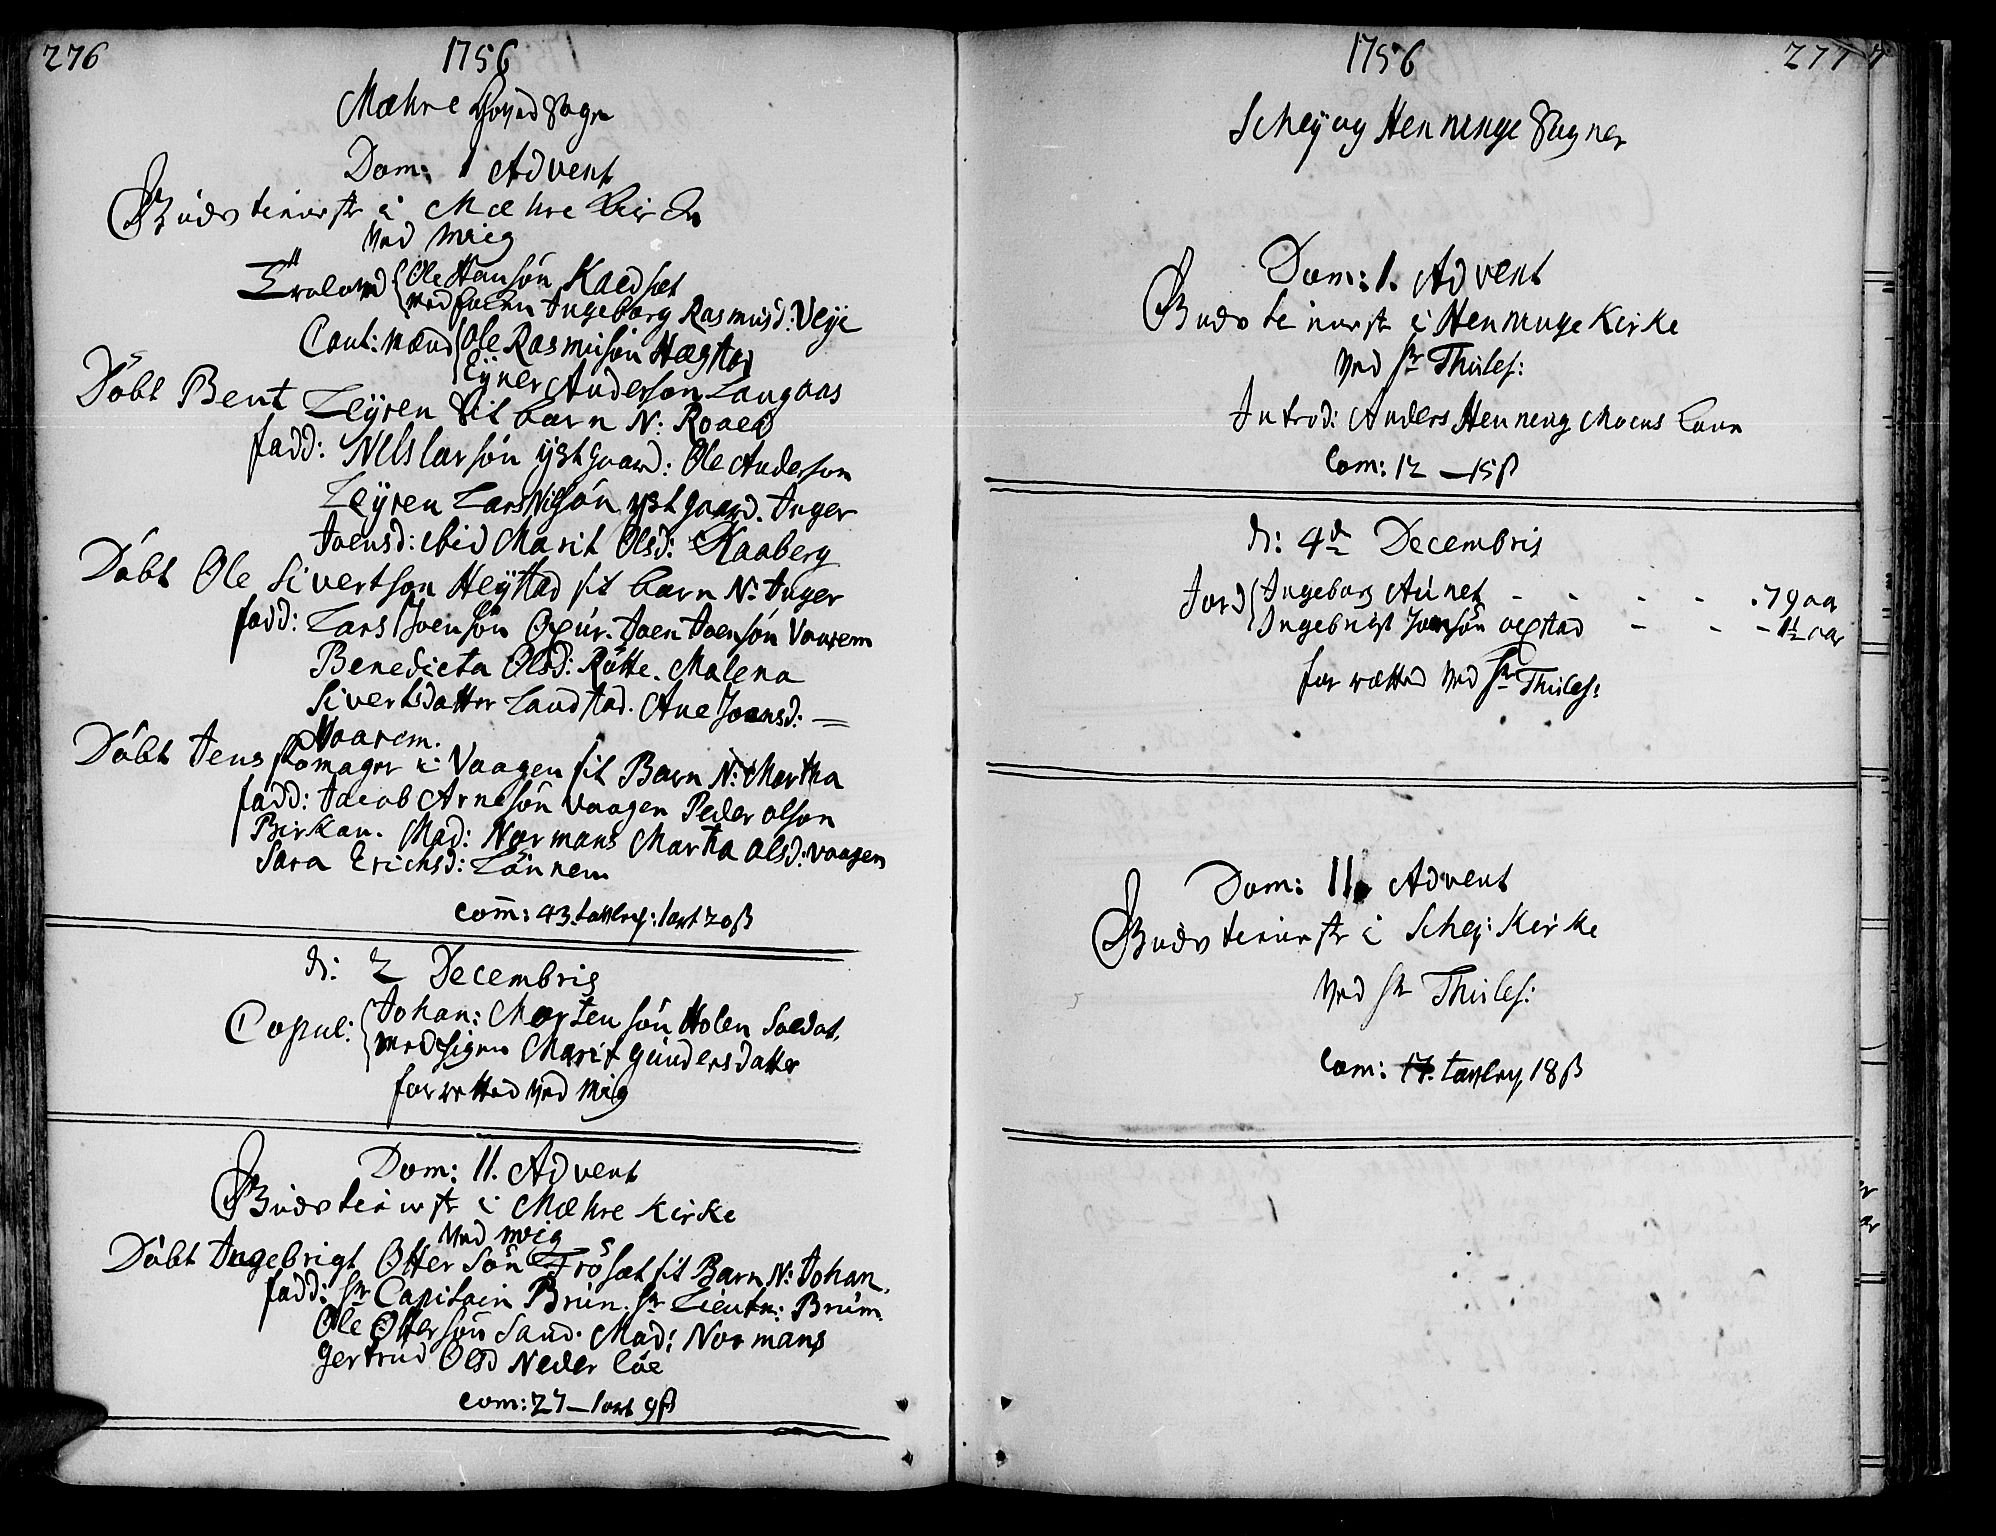 276
1756
Mæhre Hoved Sogn
Dom: 1 Advent
Guds tieniste i Mæhre Kirke
ved mig
Trolovd Ole Hansön Kaldset
med Pigen Ingeborg Rasmusd: Veye
Caut: mænd Ole Rasmusön Hegstad
Eyner Anderson Langaas
Döbt Bent Leÿren sit barn N: Roald
fadd: Nels larsön ystgaard: Ole Anderson
Leÿren Lars Nilsön ystgaard. Inger
Joensd: ibid Marit Olsd: Kaaberg
Döbt Ole Sivertson Heÿstad sit barn N: Inger
fadd: Lars Joensön Oxur. Joen Joensön Vaarem
Benedicta Olsd: Rötte. Malena
Sivertsdatter Landstad. Ane Joensd:
Vaarem.
Döbt Jens skomager i Vaagen sit Barn N: Martha
fadd: Jacob Arnesön Vaagen Peder olson
Birkan. Mad: Normans Martha Olsd: Vaagen
Sara Erichsd: Lönnem
Com: 43 tavlep: lovt 20 ß
d: 2 Decembris
Copul: Johan: Mortensön Holen Soldat,
med Pigen Marit Gundersdatter
forretted ved mig
Dom: 11. Advent
Guds tieniste i Mæhre Kirke
ved mig
Döbt Ingebrigt Ottersön Fröset sit Barn N: Johan,
fadd: Hr Capitain Brun. Hr Lieutn: Brüm.
Ole Ottersön Sand. Mad: Normans
Gertrud Olsd Neder löe
Com: 27 — lovt 9 ß
1756
277
Schej og Henninge Sogner
Dom: 1. Advent
Guds tieniste i Henninge Kirke
ved Hr Thules:
Introd: Anders Henning Moens Kone
Com: 12 — 15 ß
d: 4de Decembris
Jord Ingeborg Aunet - - - - . 79 aar
Ingebrigt Joensön vestad - - - 1½ aar
for rætted ved Hr Thules:
Dom: 11. Advent
Guds tieniste i Schej: Kirke
ved Hr Thules:
Com: 17. tavlep 18 ß